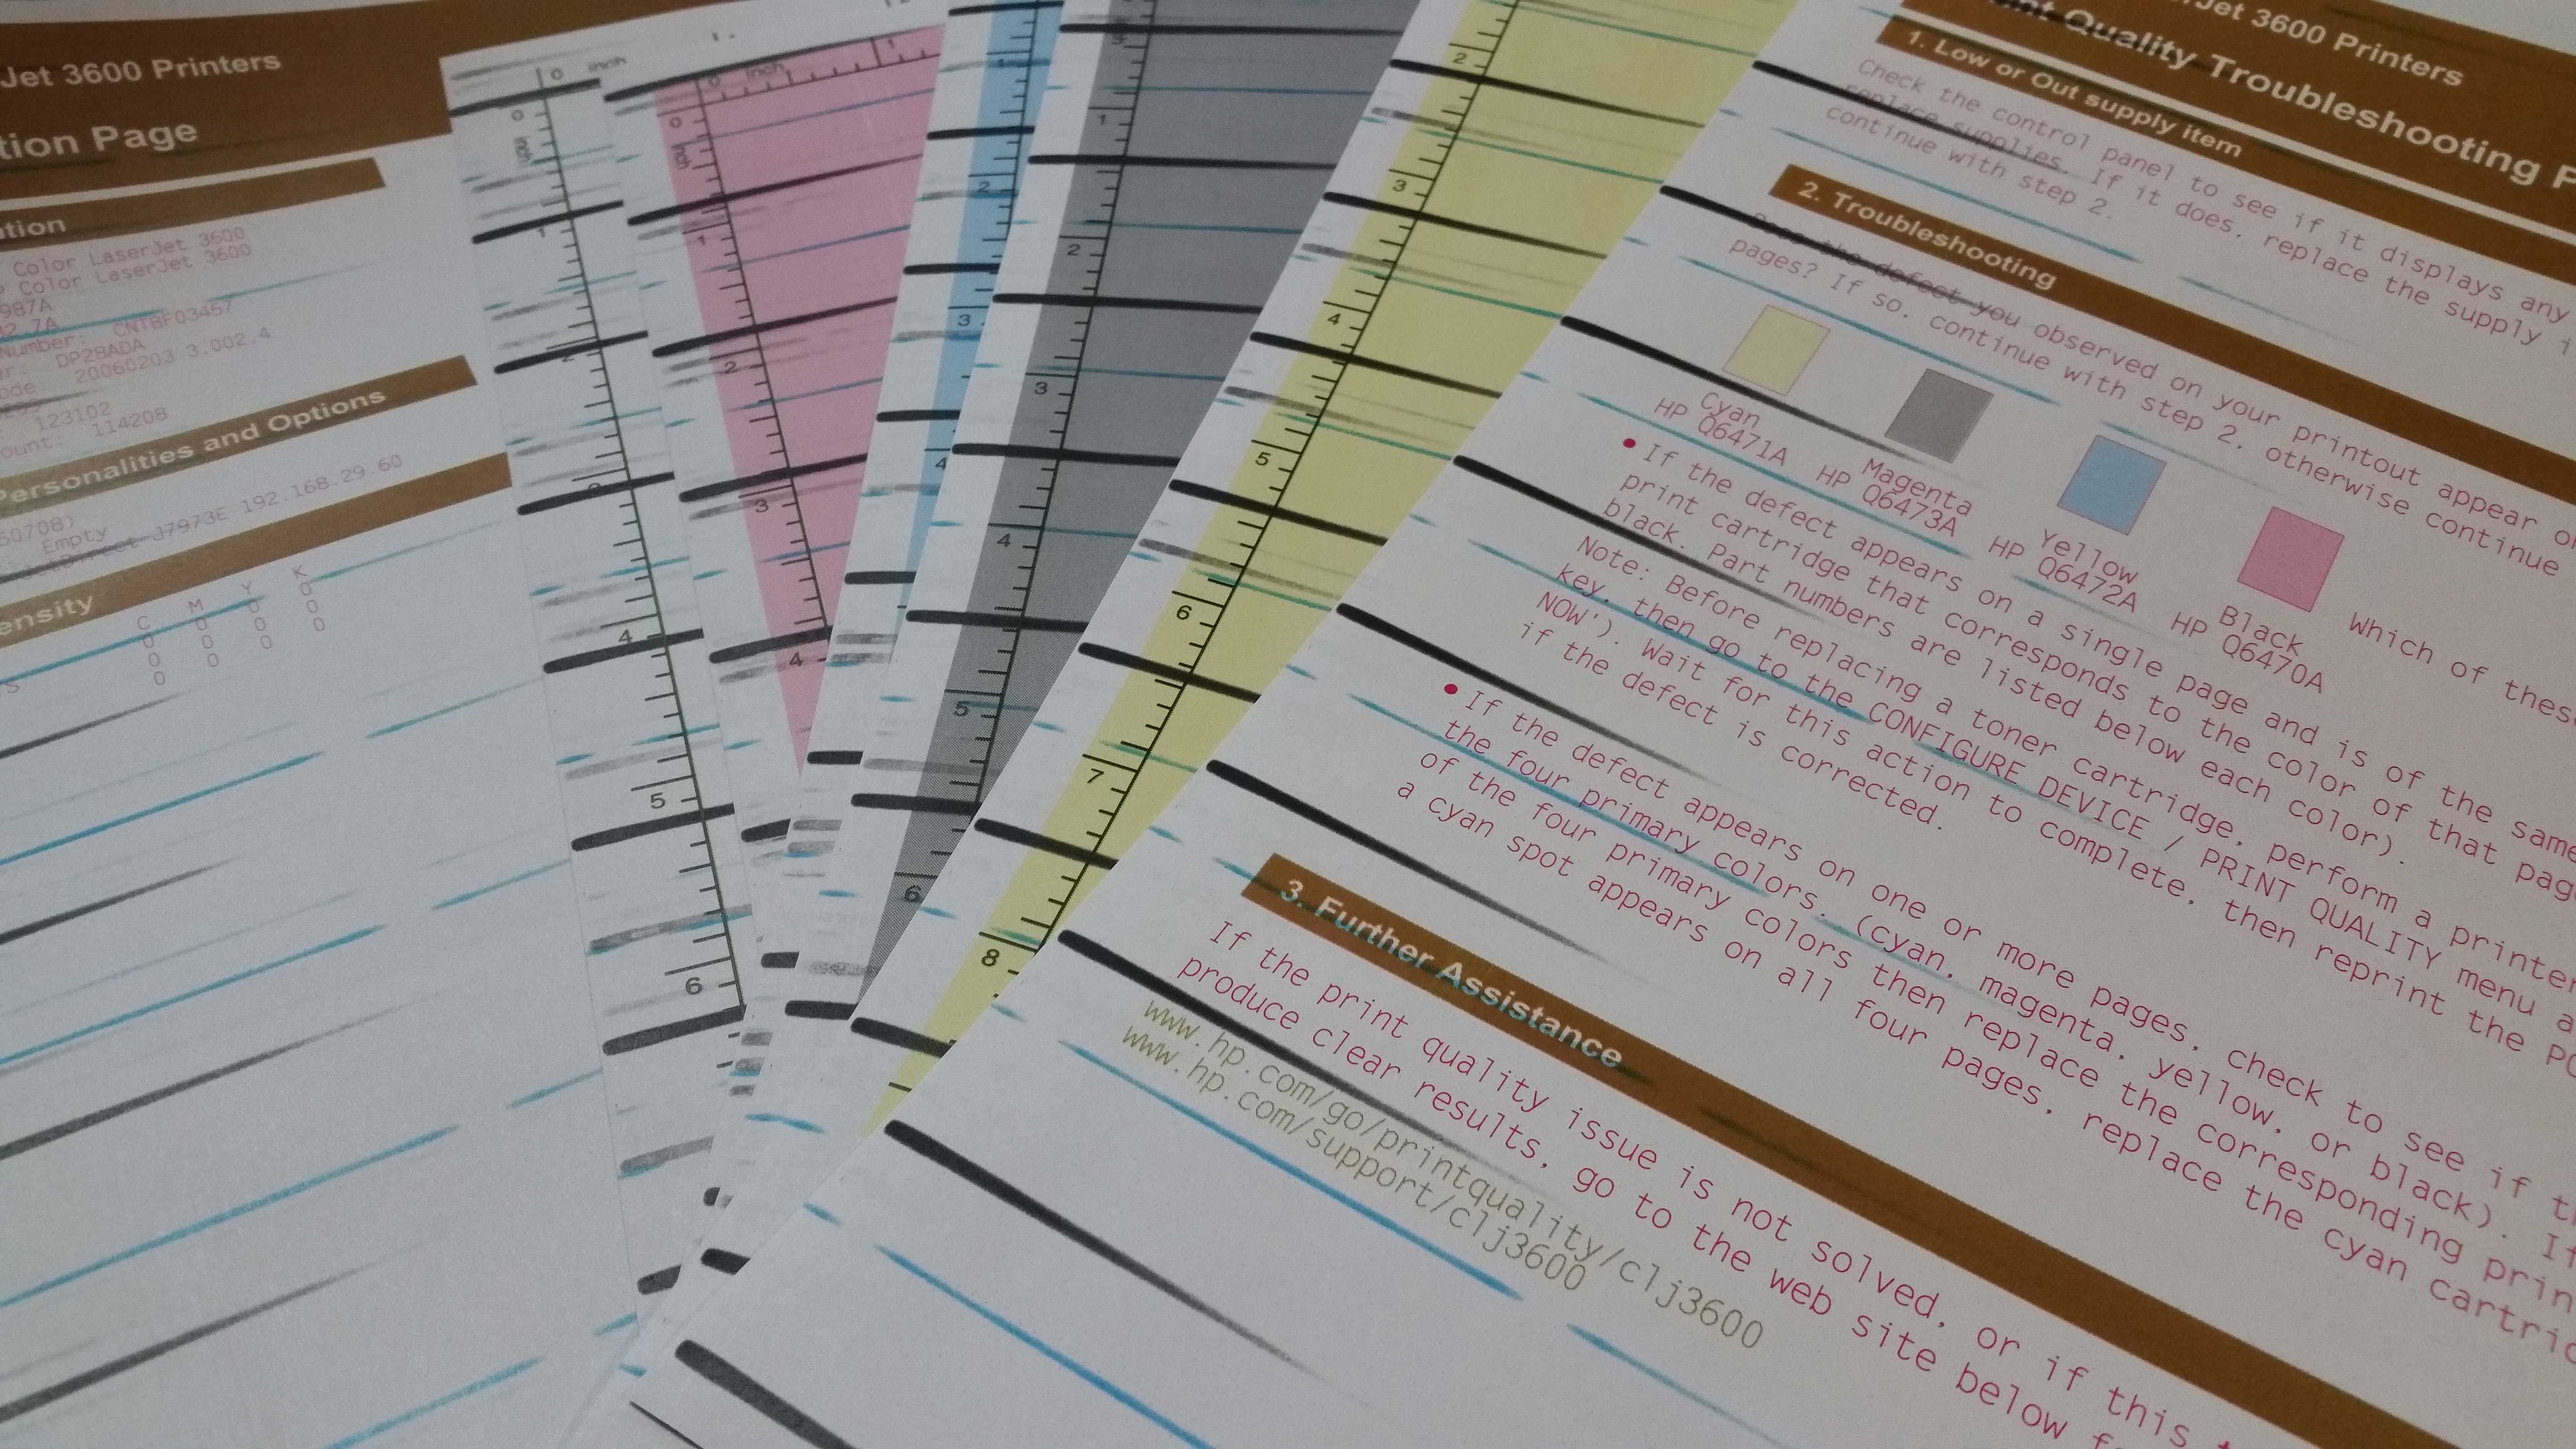 Jet 3600 Printers
tion Page
ation
Color LaserJet 3600
Color LaserJet 3600
987A
02.7A
Number: CNTBF03457
er: DP28ADA
ode: 20060203 3.002.4
123102
ount: 114208
Personalities and Options
50708)
Empty
J7973E 192.168.29.60
ensity
C M Y K
0 0 0 0
0 0 0 0
0 0 0 0
0
0 inch
0
inch
1
2
3
4
5
6
0 inch 1
0
inch
1
2
3
4
1
2
3
4
1
2
3
4
5
6
2
3
4
5
6
7
8
Jet 3600 Printers
nt Quality Troubleshooting P
1. Low or Out supply item
Check the control panel to see if it displays any
replace supplies. If it does, replace the supply i
continue with step 2.
2. Troubleshooting
Does the defect you observed on your printout appear o
pages? If so, continue with step 2, otherwise continue
Cyan
HP Q6471A
Magenta
HP Q6473A
Yellow
HP Q6472A
Black
HP Q6470A
Which of thes
• If the defect appears on a single page and is of the same
print cartridge that corresponds to the color of that pag
black. Part numbers are listed below each color).
Note: Before replacing a toner cartridge, perform a printer
key, then go to the CONFIGURE DEVICE / PRINT QUALITY menu a
NOW'). Wait for this action to complete, then reprint the PQ
if the defect is corrected.
• If the defect appears on one or more pages, check to see if t
the four primary colors. (cyan, magenta, yellow, or black). If
of the four primary colors then replace the corresponding prin
a cyan spot appears on all four pages, replace the cyan cartri
3. Further Assistance
If the print quality issue is not solved, or if this
produce clear results, go to the web site below f
www.hp.com/go/printquality/clj3600
www.hp.com/support/clj3600